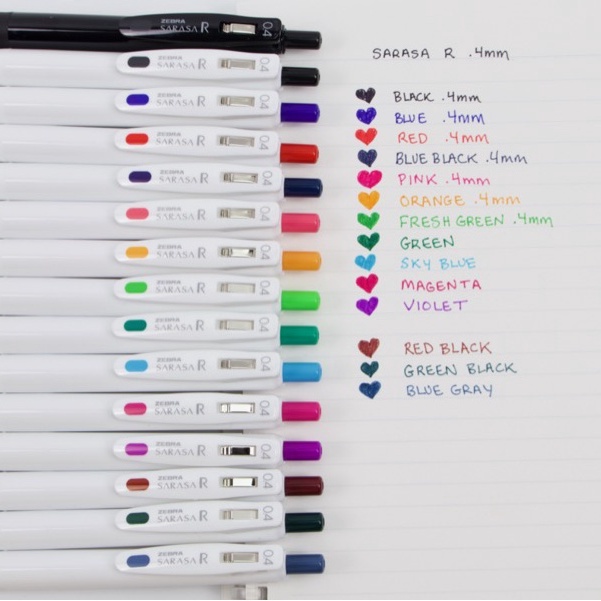 ZEBRA
SARASA R 0.4
ZEBRA
SARASA R 0.4
ZEBRA
SARASA R 0.4
ZEBRA
SARASA R 0.4
ZEBRA
SARASA R 0.4
ZEBRA
SARASA R 0.4
ZEBRA
SARASA R 0.4
ZEBRA
SARASA R 0.4
ZEBRA
SARASA R 0.4
ZEBRA
SARASA R 0.4
ZEBRA
SARASA R 0.4
ZEBRA
SARASA R 0.4
ZEBRA
SARASA R 0.4
ZEBRA
SARASA R 0.4
ZEBRA
SARASA R 0.4
SARASA R .4mm
BLACK .4mm
BLUE .4mm
RED .4mm
BLUE BLACK .4mm
PINK .4mm
ORANGE .4mm
FRESH GREEN .4mm
GREEN
SKY BLUE
MAGENTA
VIOLET
RED BLACK
GREEN BLACK
BLUE GRAY